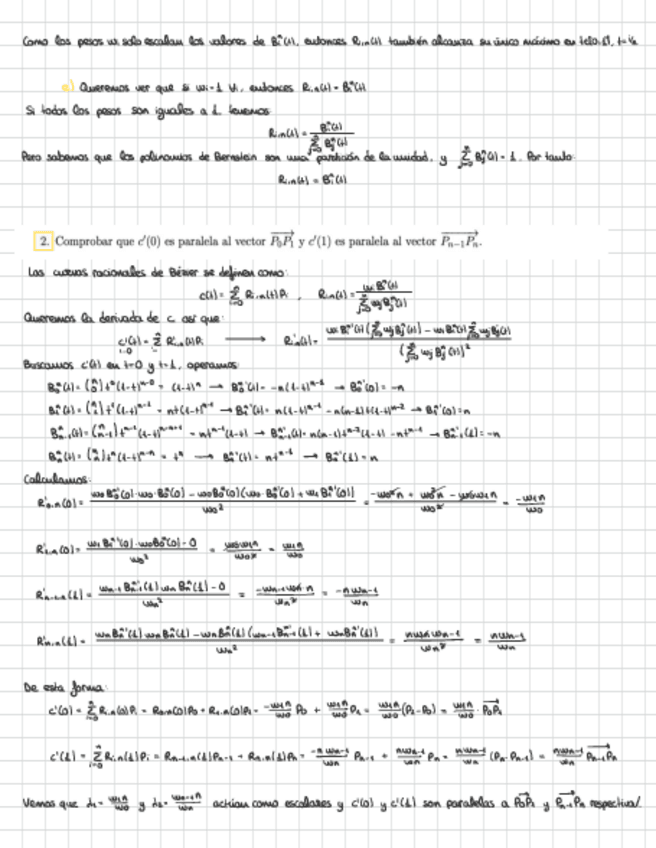 Como los pesos wᵢ solo escalan los valores de Bᵢⁿ(t), entonces Rᵢ,ₙ(t) también alcanza su único máximo en
e) Queremos ver que si wᵢ=1 ∀i, entonces Rᵢ,ₙ(t) = Bᵢⁿ(t)
Si todos los pesos son iguales a 1 tenemos:
Rᵢ,ₙ(t) = Bᵢⁿ(t) / Σⱼ₌₀ⁿ Bⱼⁿ(t)
Pero sabemos que los polinomios de Bernstein son una partición de la unidad, y Σⱼ₌₀ⁿ Bⱼⁿ(t) = 1. Por tanto:
Rᵢ,ₙ(t) = Bᵢⁿ(t)
2. Comprobar que c′(0) es paralela al vector P₀P₁ y c′(1) es paralela al vector Pₙ₋₁Pₙ.
Las curvas racionales de Bézier se definen como:
c(t) = Σᵢ₌₀ⁿ Rᵢ,ₙ(t)Pᵢ , Rᵢ,ₙ(t) = wᵢBᵢⁿ(t) / Σⱼ₌₀ⁿ wⱼBⱼⁿ(t)
Queremos la derivada de c así que:
c'(t) = Σᵢ₌₀ⁿ R'ᵢ,ₙ(t)Pᵢ → R'ᵢ,ₙ(t) =
Buscamos c'(t) en t=0 y t=1, operamos:
B₀ⁿ(t) = (n 0) t⁰(1-t)ⁿ⁻⁰ = (1-t)ⁿ → B₀ⁿ'(t) = -n(1-t)ⁿ⁻¹ → B₀ⁿ'(0) = -n
B₁ⁿ(t) = (n 1) t¹(1-t)ⁿ⁻¹ = nt(1-t)ⁿ⁻¹ → B₁ⁿ'(t) = n(1-t)ⁿ⁻¹ - n(n-1)t(1-t)ⁿ⁻² → B₁ⁿ'(0) = n
Bₙ₋₁ⁿ(t) = (n n-1) tⁿ⁻¹(1-t)ⁿ⁻ⁿ⁺¹ = ntⁿ⁻¹(1-t) → Bₙ₋₁ⁿ'(t) = n(n-1)tⁿ⁻²(1-t) - ntⁿ⁻¹ → Bₙ₋₁ⁿ'(1) = -n
Bₙⁿ(t) = (n n) tⁿ(1-t)ⁿ⁻ⁿ = tⁿ → Bₙⁿ'(t) = ntⁿ⁻¹ → Bₙⁿ'(1) = n
Calculamos:
R'₀,ₙ(0) = w₀B₀ⁿ'(0)·w₀·B₀ⁿ(0) - w₀B₀ⁿ(0)(w₀·B₀ⁿ'(0) + w₁B₁ⁿ'(0)) / w₀² = -w₀²n + w₀²n - w₀w₁n / w₀² = -w₁n / w₀
R'₁,ₙ(0) = w₁B₁ⁿ'(0)·w₀B₀ⁿ(0) - 0 / w₀² = w₀w₁n / w₀² = w₁n / w₀
R'ₙ₋₁,ₙ(1) = wₙ₋₁Bₙ₋₁ⁿ'(1)wₙBₙⁿ(1) - 0 / wₙ² = -wₙ₋₁wₙ·n / wₙ² = -n wₙ₋₁ / wₙ
R'ₙ,ₙ(1) = wₙBₙⁿ'(1)wₙBₙⁿ(1) - wₙBₙⁿ(1)(wₙ₋₁Bₙ₋₁ⁿ'(1) + wₙBₙⁿ'(1)) / wₙ² = nwₙwₙ₋₁ / wₙ² = nwₙ₋₁ / wₙ
De esta forma:
c'(0) = Σᵢ₌₀ⁿ R'ᵢ,ₙ(0)Pᵢ = R'₀,ₙ(0)P₀ + R'₁,ₙ(0)P₁ = -w₁n/w₀ P₀ + w₁n/w₀ P₁ = w₁n/w₀ (P₁-P₀) = w₁n/w₀ · P₀P₁
c'(1) = Σᵢ₌₀ⁿ R'ᵢ,ₙ(1)Pᵢ = R'ₙ₋₁,ₙ(1)Pₙ₋₁ + R'ₙ,ₙ(1)Pₙ = -n wₙ₋₁/wₙ Pₙ₋₁ + nwₙ₋₁/wₙ Pₙ = nwₙ₋₁/wₙ (Pₙ-Pₙ₋₁) = nwₙ₋₁/wₙ Pₙ₋₁Pₙ
Vemos que λ₁ = w₁n/w₀ y λ₂ = wₙ₋₁n/wₙ actúan como escalares y c'(0) y c'(1) son paralelas a P₀P₁ y Pₙ₋₁Pₙ